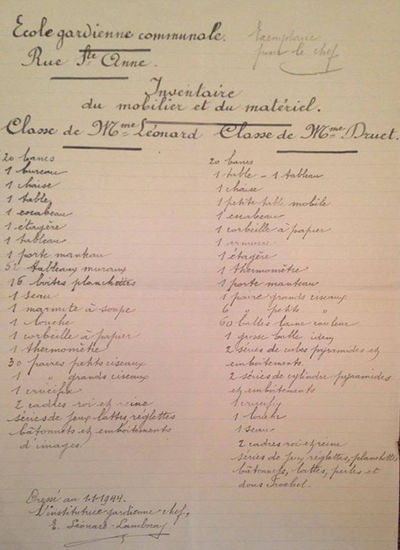 Ecole gardienne communale.
Exemplaire
pour le chef
Rue Ste Anne.
Inventaire
du mobilier et du matériel.
Classe de Mme Léonard
20 bancs
1 bureau
1 chaise
1 table
1 escabeau
1 étagère
1 tableau
1 porte manteau
tableaux muraux
16 boîtes planchettes
1 seau
1 marmite à soupe
1 louche
1 corbeille à papier
1 thermomètre
30 paires petits ciseaux
1 " grands ciseaux
1 crucifix
2 cadres roi et reine
séries de jeux lattes, réglettes
bâtonnets et emboîtements
d'images.
Classe de Mme Druet.
20 bancs
1 table - 1 tableau
1 chaise
1 petite table mobile
1 escabeau
1 corbeille à papier
1 armoire
1 étagère
1 thermomètre
1 porte manteau
1 paire grands ciseaux
6 " petits "
60 balles laine couleur
1 grosse balle idem
2 séries de cubes pyramides et
emboîtements.
2 séries de cylindre pyramides
et emboîtements
1 crucifix
1 cruche
1 seau
2 cadres roi et reine
séries de jeux réglettes, planchettes
bâtonnets, lattes, perles et
dons Froebel.
Dressé au 1.1.1944.
L'institutrice gardienne chef,
E. Léonard-Lambray